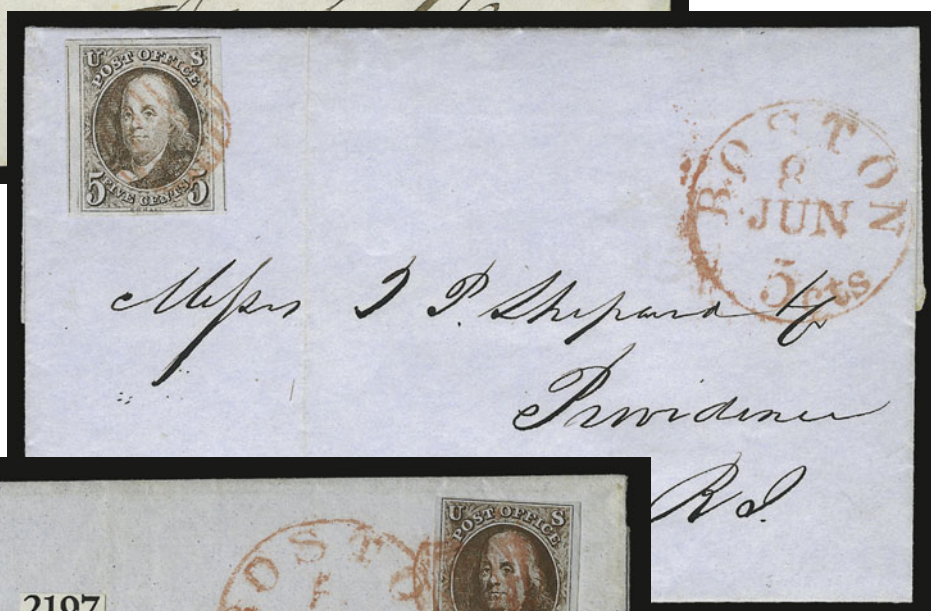 U S
POST OFFICE
5 FIVE CENTS 5
BOSTON
8
JUN
5cts
Messrs J P. Shepard &
Providence
R I.
2197
BOSTO
U S
POST OFFICE